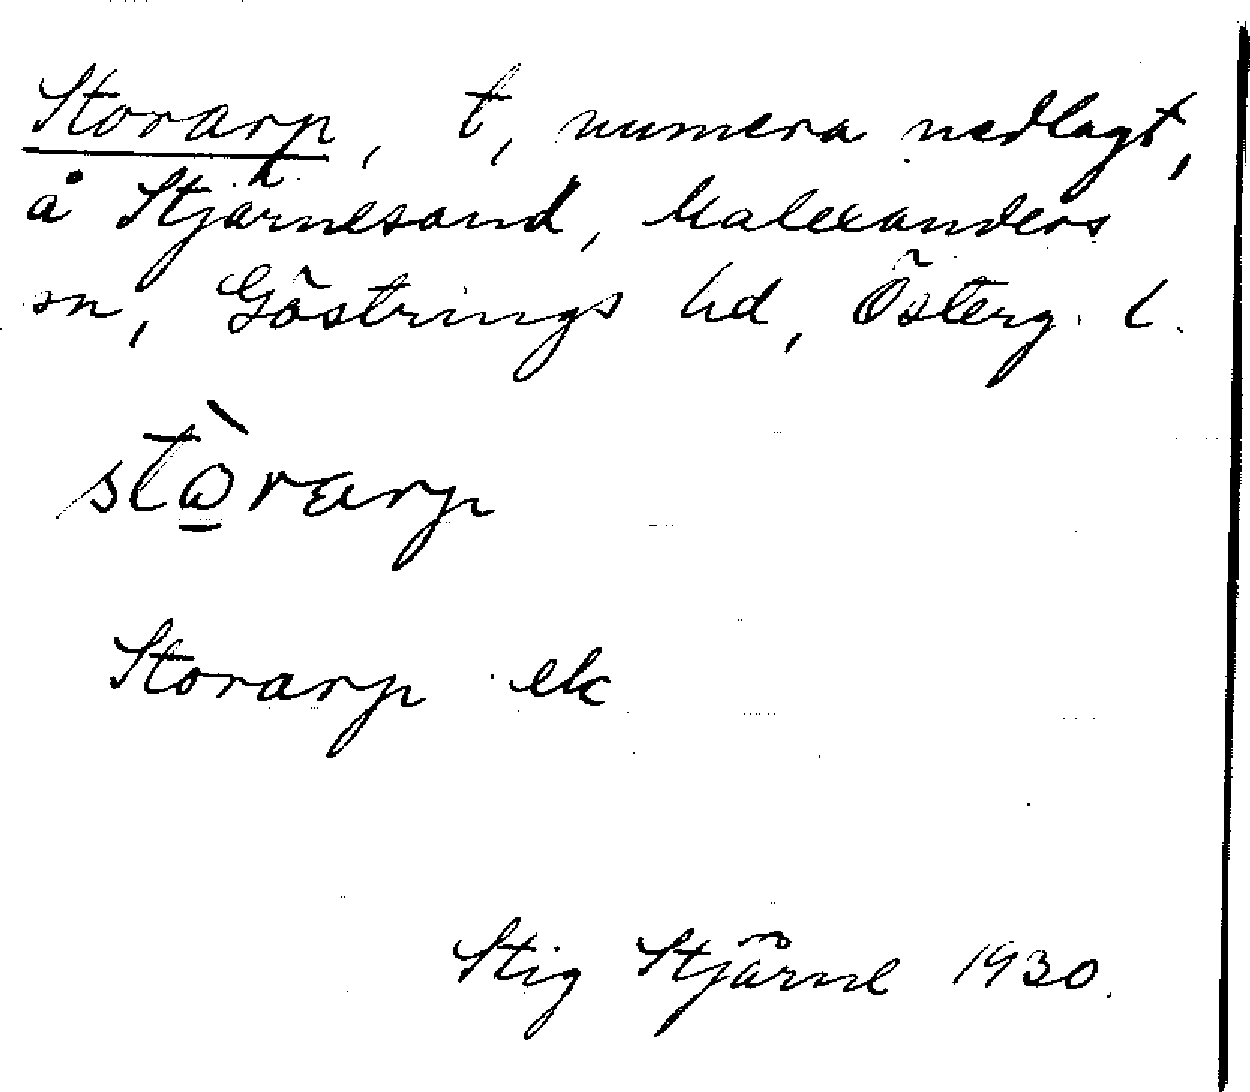 Storarp, t, numera nedlagt,
å Stjärnesand, Malexanders
sn, Göstrings hd, Österg. l.
stòrarp
Storarp ek
Stig Stjärne 1930.